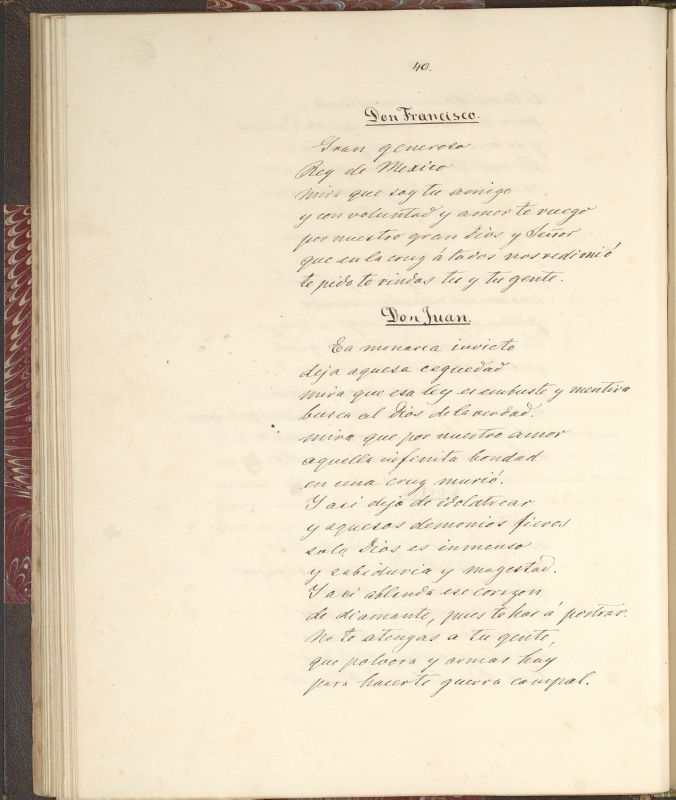 40.
Don Francisco.
Gran generoso
Rey de Mexico
mira que soy tu amigo
y con voluntad y amor te ruego
por nuestro gran Dios y Señor
que en la cruz á todos nos redimió
te pido te rindas tu y tu gente.
Don Juan.
Ea monarca invicto
deja aquesa ceguedad
mira que esa ley es embuste y mentira
busca al Dios de la verdad.
mira que por nuestro amor
aquella infinita bondad
en una cruz murió.
Y asi deja de idolatrear
y aquesos demonios fieros
solo Dios es inmenso
y sabiduria y magestad.
Y asi ablanda ese corazon
de diamante, pues te has á postrar.
No te atengas a tu gente,
que polvora y armas hay
para hacerte guerra campal.